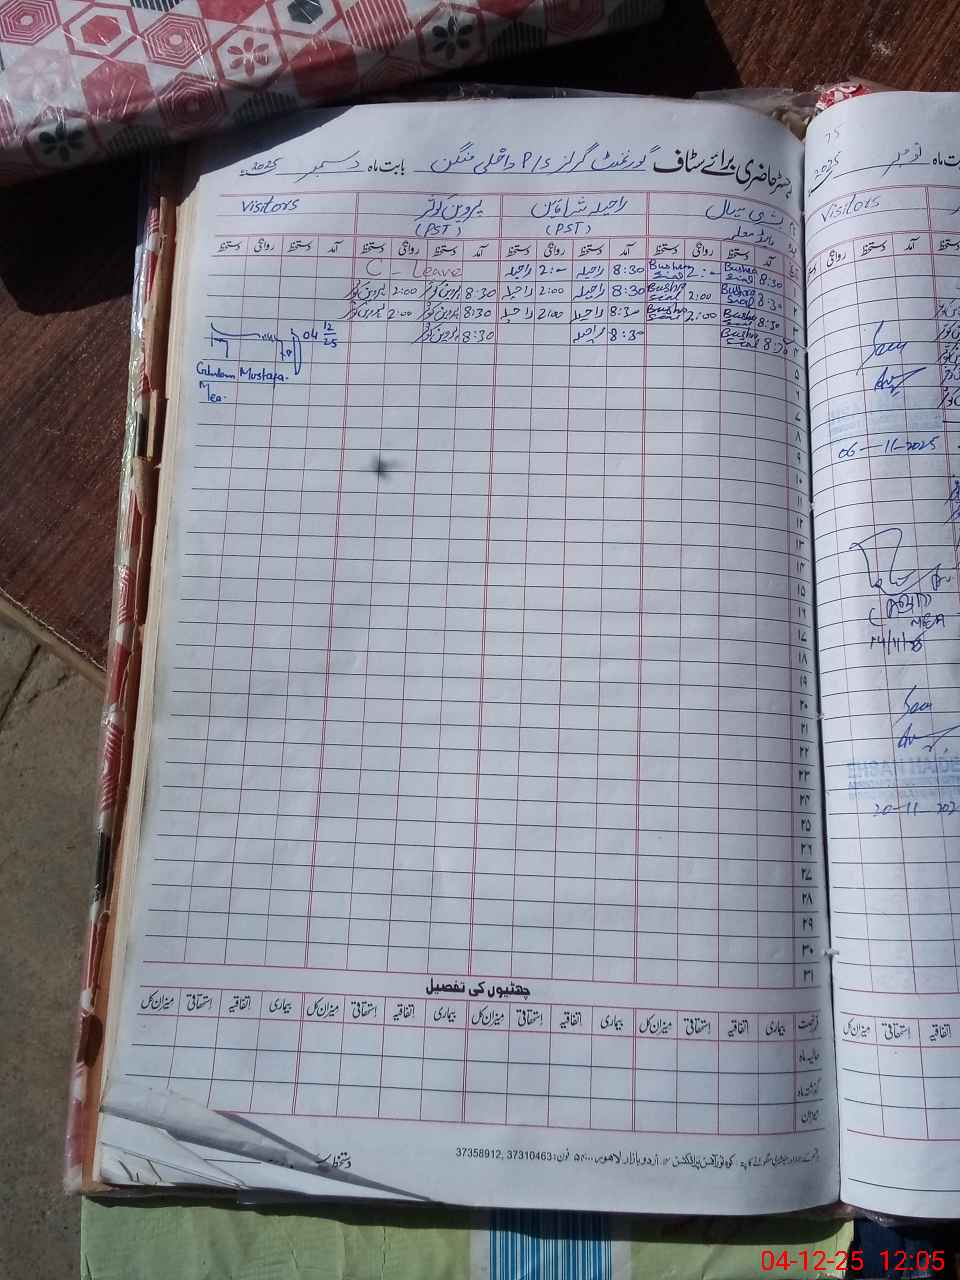 رجسٹر حاضری برائے سٹاف گورنمنٹ گرلز P/S داخلی منگن بابت ماہ دسمبر 2025
بشریٰ سیال راحیلہ پروین کوثر Visitors
(PST) (PST)
آمد دستخط روانگی دستخط آمد دستخط روانگی دستخط آمد دستخط روانگی دستخط آمد دستخط روانگی دستخط
۱ 8:30 Bushra Sial 2:- Bushra Sial 8:30 راحیلہ 2:- راحیلہ C - Leave
۲ 8:30 Bushra Sial 2:00 Bushra Sial 8:30 راحیلہ 2:00 راحیلہ 8:30 پروین کوثر 2:00 پروین کوثر
۳ 8:30 Bushra Sial 2:00 Bushra Sial 8:30 راحیلہ 2:00 راحیلہ 8:30 پروین کوثر 2:00 پروین کوثر
۴ 8:30 Bushra Sial 8:30 راحیلہ 8:30 پروین کوثر 04 12/25
۵
Ghulam Mustafa.
۶
Mea.
۷
۸
۹
۱۰
۱۱
۱۲
۱۳
۱۴
۱۵
۱۶
۱۷
۱۸
۱۹
۲۰
۲۱
۲۲
۲۳
۲۴
۲۵
۲۶
۲۷
۲۸
۲۹
۳۰
۳۱
چھٹیوں کی تفصیل
فرصت بیماری اتفاقیہ استحقاقی میزان کل بیماری اتفاقیہ استحقاقی میزان کل بیماری اتفاقیہ استحقاقی میزان کل بیماری اتفاقیہ استحقاقی میزان کل
حالیہ ماہ
گذشتہ ماہ
میزان
اردو بازار لاہور فون: 37310463, 37358912
دستخط
2025
Visitors
آمد دستخط روانگی دستخط
06-11-2025
MEA
20-11-202
میزان کل استحقاقی اتفاقیہ
04-12-25 12:05